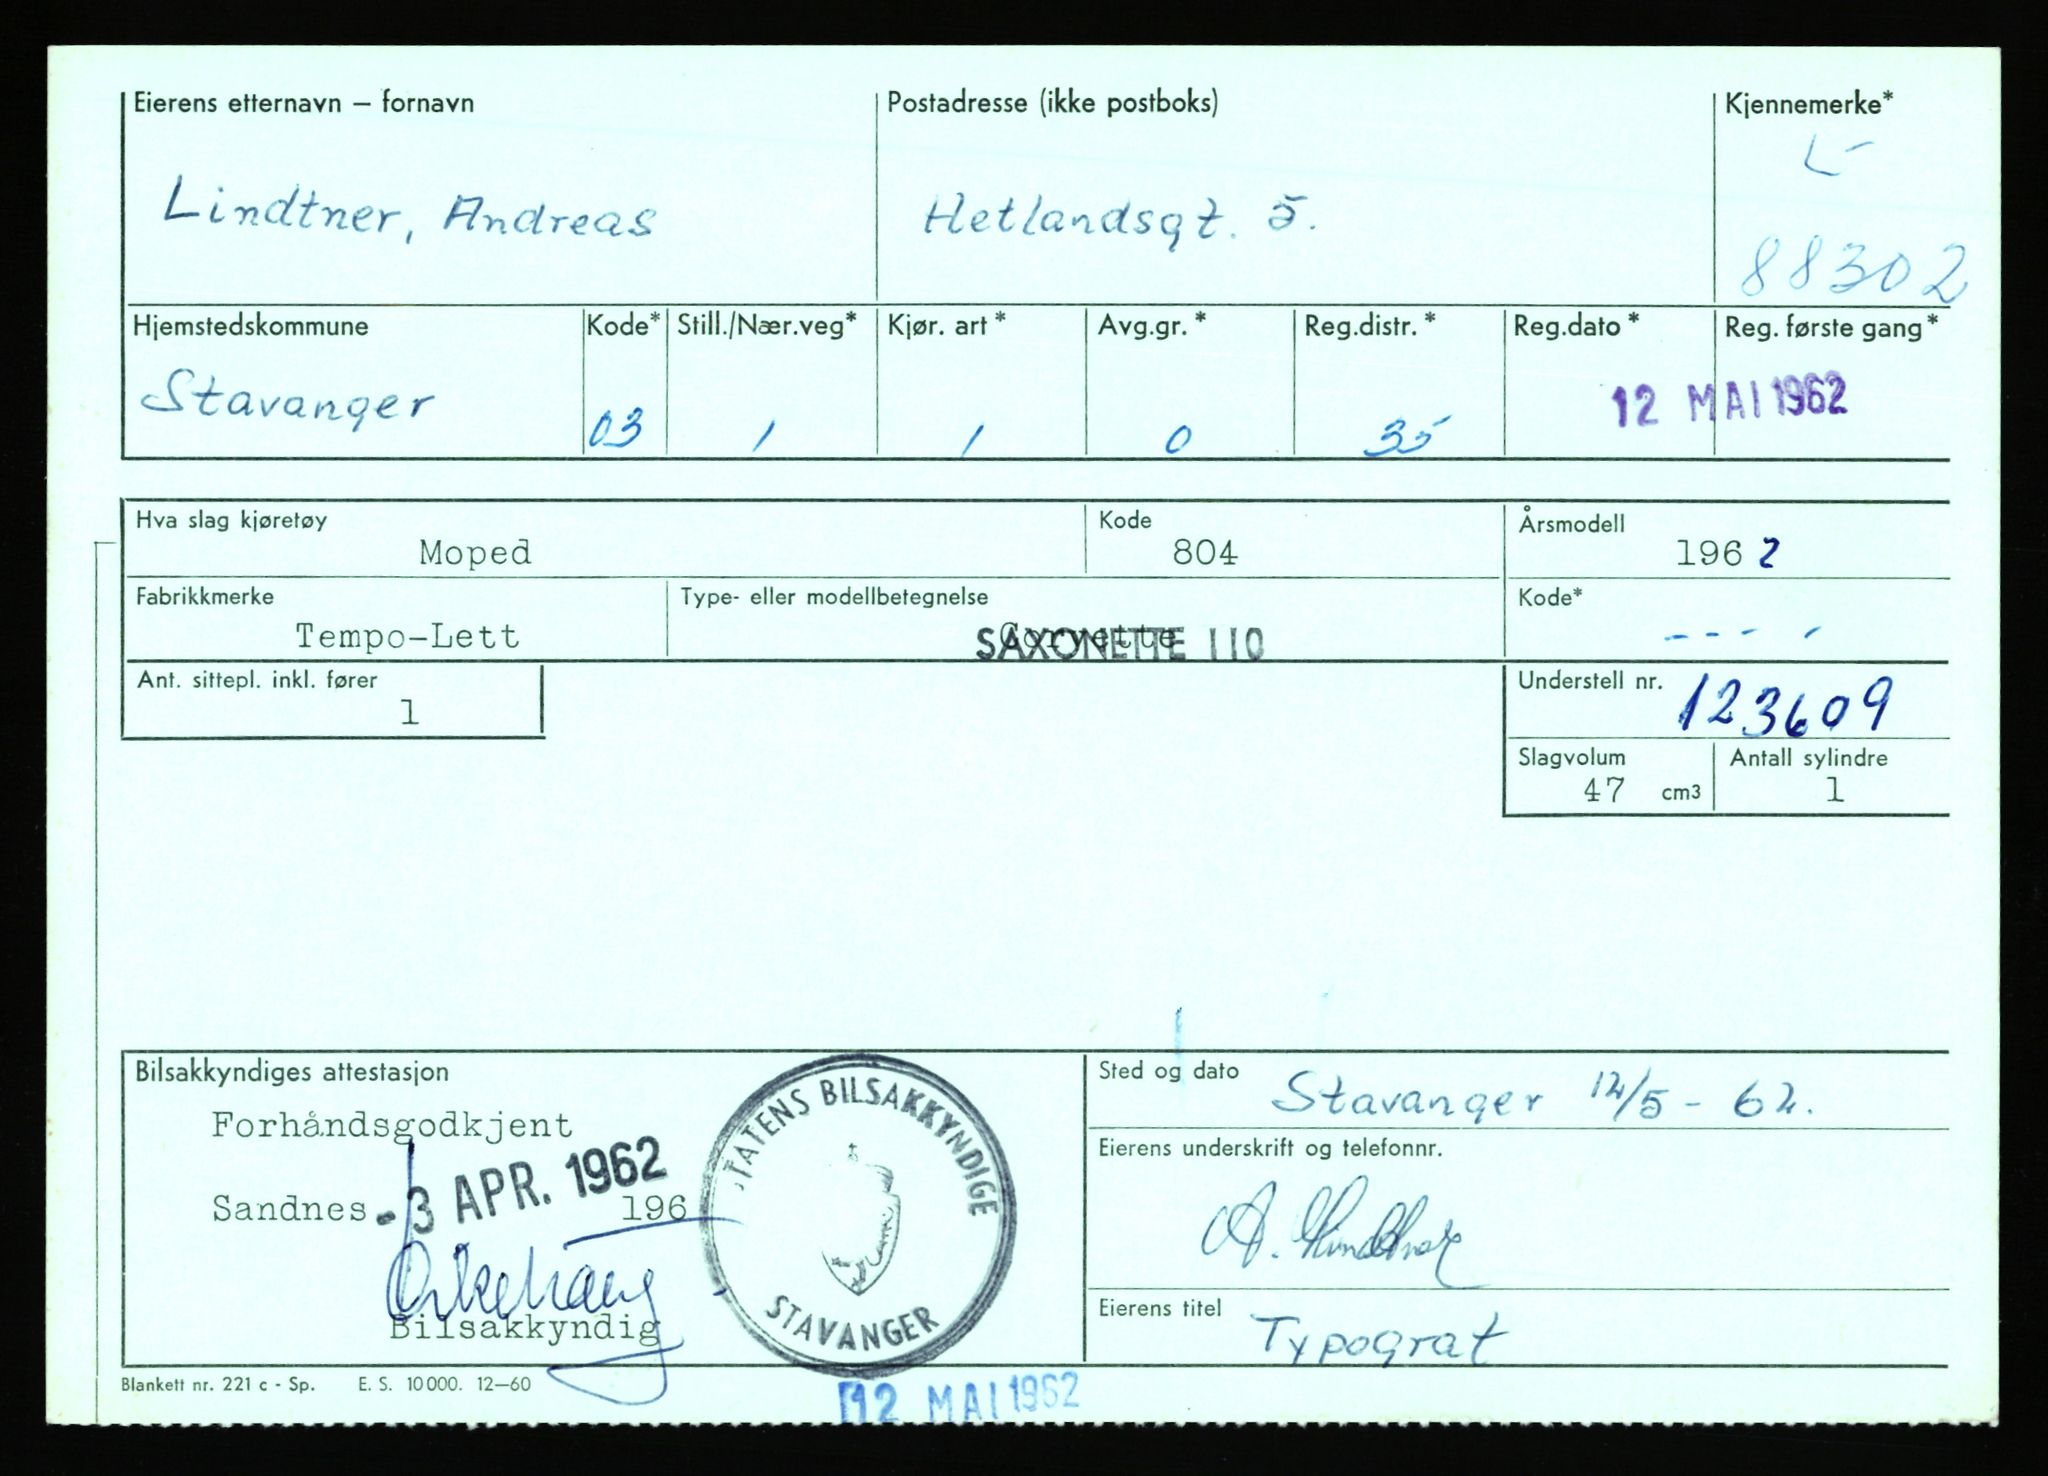 Eierens etternavn – fornavn
Lindtner, Andreas
Postadresse (ikke postboks)
Hetlandsgt. 5.
Kjennemerke*
L-
88302
Hjemstedskommune
Stavanger
Kode*
03
Still./Nær.veg*
1
Kjør. art *
1
Avg.gr. *
0
Reg.distr. *
35
Reg.dato *
Reg. første gang *
12 MAI 1962
Hva slag kjøretøy
Moped
Kode
804
Årsmodell
1962
Fabrikkmerke
Tempo-Lett
Type- eller modellbetegnelse
Corvette
SAXONETTE 110
Kode*
- - - -
Ant. sittepl. inkl. fører
1
Understell nr.
123609
Slagvolum
47 cm3
Antall sylindre
1
Bilsakkyndiges attestasjon
Forhåndsgodkjent
Sandnes 196
- 3 APR. 1962
Bilsakkyndig
STATENS BILSAKKYNDIGE
STAVANGER
Sted og dato
Stavanger 12/5 - 62.
Eierens underskrift og telefonnr.
A. Lindtner
Eierens titel
Typograf
Blankett nr. 221 c - Sp. E. S. 10000. 12–60
12 MAI 1962